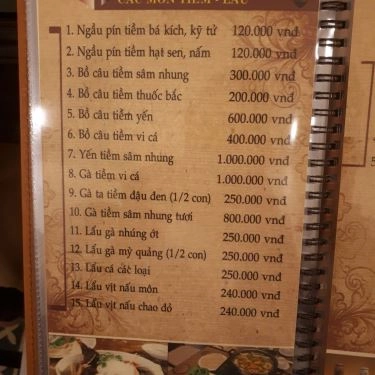 CÁC MÓN TIỀM - LẨU
1. Ngẩu pín tiềm bá kích, kỹ tử 120.000 vnđ
2. Ngẩu pín tiềm hạt sen, nấm 120.000 vnđ
3. Bồ câu tiềm sâm nhung 300.000 vnđ
4. Bồ câu tiềm thuốc bắc 200.000 vnđ
5. Bồ câu tiềm yến 600.000 vnđ
6. Bồ câu tiềm vi cá 400.000 vnđ
7. Yến tiềm sâm nhung 1.000.000 vnđ
8. Gà tiềm vi cá 1.000.000 vnđ
9. Gà ta tiềm đậu đen (1/2 con) 250.000 vnđ
10. Gà tiềm sâm nhung tươi 800.000 vnđ
11. Lẩu gà nhúng ớt 250.000 vnđ
12. Lẩu gà mỳ quảng (1/2 con) 250.000 vnđ
13. Lẩu cá các loại 250.000 vnđ
14. Lẩu vịt nấu môn 240.000 vnđ
15. Lẩu vịt nấu chao đỏ 240.000 vnđ